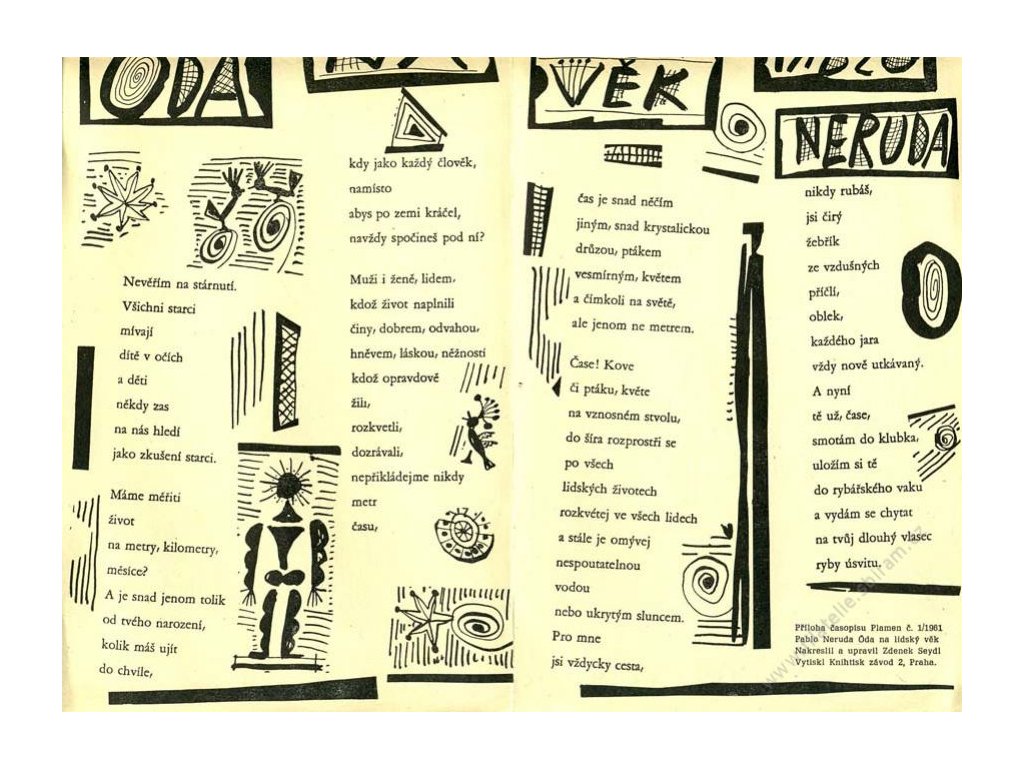 ÓDA
NA
VĚK
PABLO
NERUDA
Nevěřím na stárnutí.
Všichni starci
mívají
dítě v očích
a děti
někdy zas
na nás hledí
jako zkušení starci.
Máme měřiti
život
na metry, kilometry,
měsíce?
A je snad jenom tolik
od tvého narození,
kolik máš ujít
do chvíle,
kdy jako každý člověk,
namísto
abys po zemi kráčel,
navždy spočineš pod ní?
Muži i ženě, lidem,
kdož život naplnili
činy, dobrem, odvahou,
hněvem, láskou, něžností
kdož opravdově
žili,
rozkvetli,
dozrávali,
nepřikládejme nikdy
metr
času,
čas je snad něčím
jiným, snad krystalickou
drůzou, ptákem
vesmírným, květem
a čímkoli na světě,
ale jenom ne metrem.
Čase! Kove
či ptáku, květe
na vznosném stvolu,
do šíra rozprostři se
po všech
lidských životech
rozkvétej ve všech lidech
a stále je omývej
nespoutatelnou
vodou
nebo ukrytým sluncem.
Pro mne
jsi vždycky cesta,
nikdy rubáš,
jsi čirý
žebřík
ze vzdušných
příčlí,
oblek,
každého jara
vždy nově utkávaný.
A nyní
tě už, čase,
smotám do klubka,
uložím si tě
do rybářského vaku
a vydám se chytat
na tvůj dlouhý vlasec
ryby úsvitu.
Příloha časopisu Plamen č. 1/1961
Pablo Neruda Óda na lidský věk
Nakreslil a upravil Zdenek Seydl
Vytiskl Knihtisk závod 2, Praha.